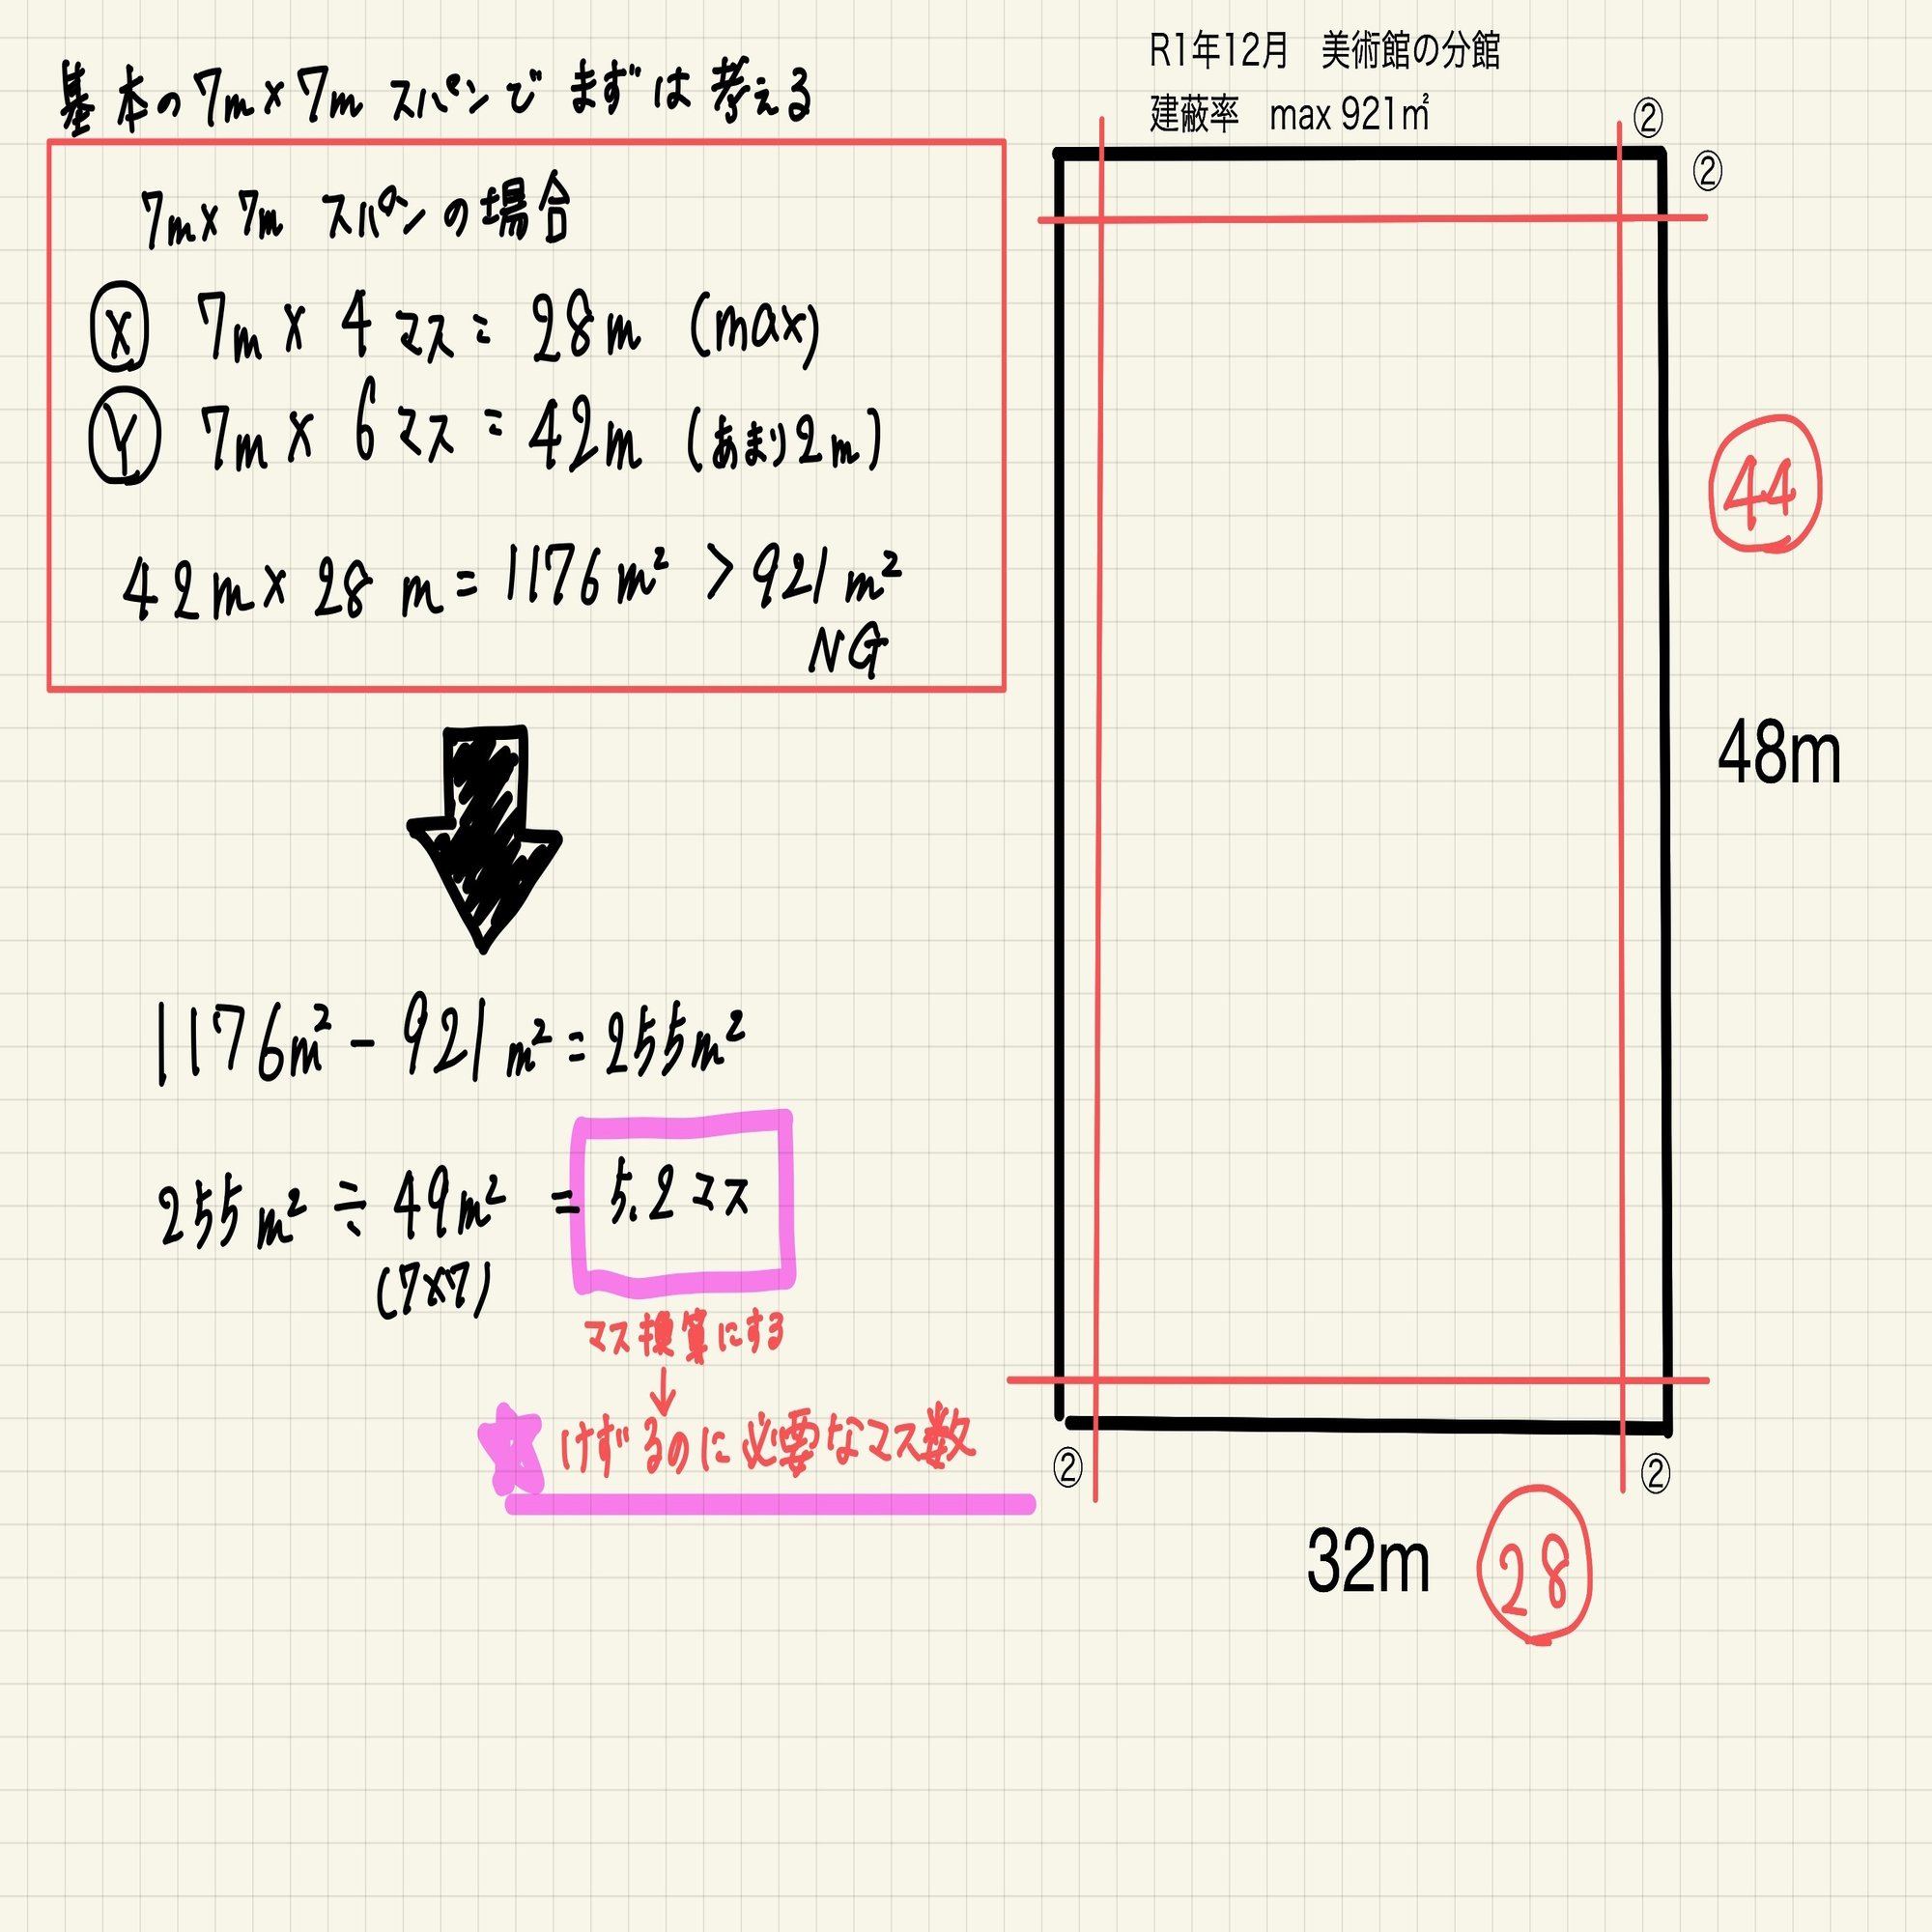 基本の7m×7mスパンでまずは考える
7m×7m スパンの場合
Ⓧ 7m×4マス=28m (max)
Ⓨ 7m×6マス=42m (あまり2m)
42m×28m=1176m²>921m²
NG
1176m²-921m²=255m²
255m²÷49m²=5.2コス
(7×7)
マス換算にする
↓
けずるのに必要なマス数
R1年12月 美術館の分館
建蔽率 max 921㎡
②
②
44
48m
②
②
32m
28